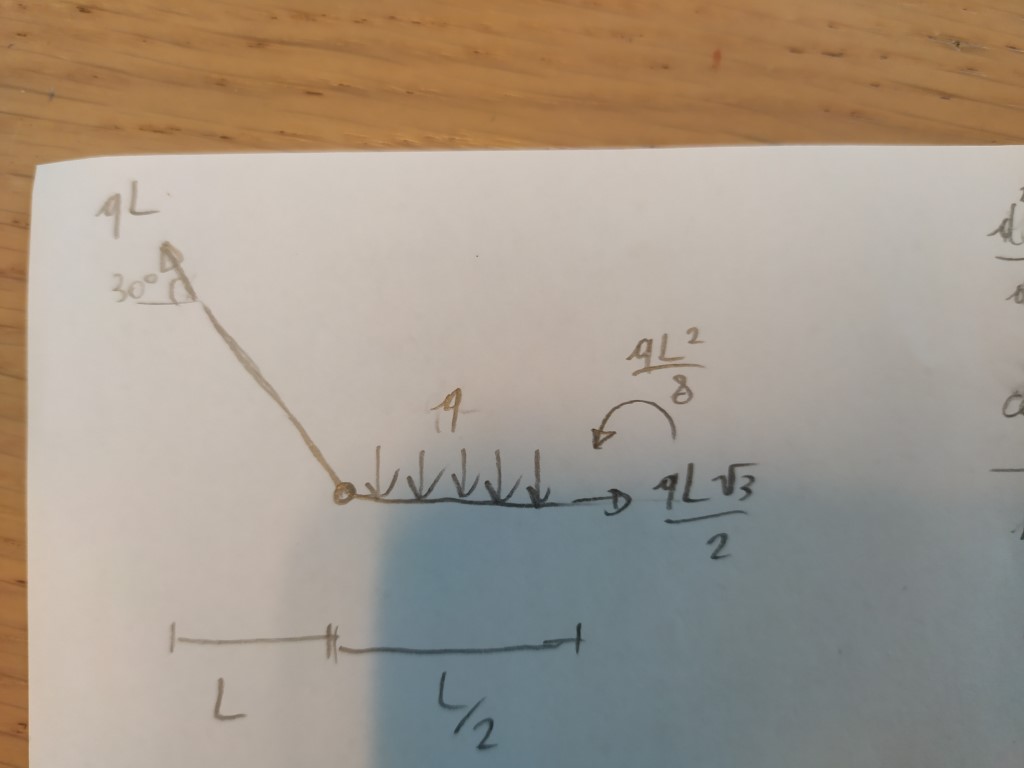 qL
30°
qL²/8
q
qL√3/2
L
L/2